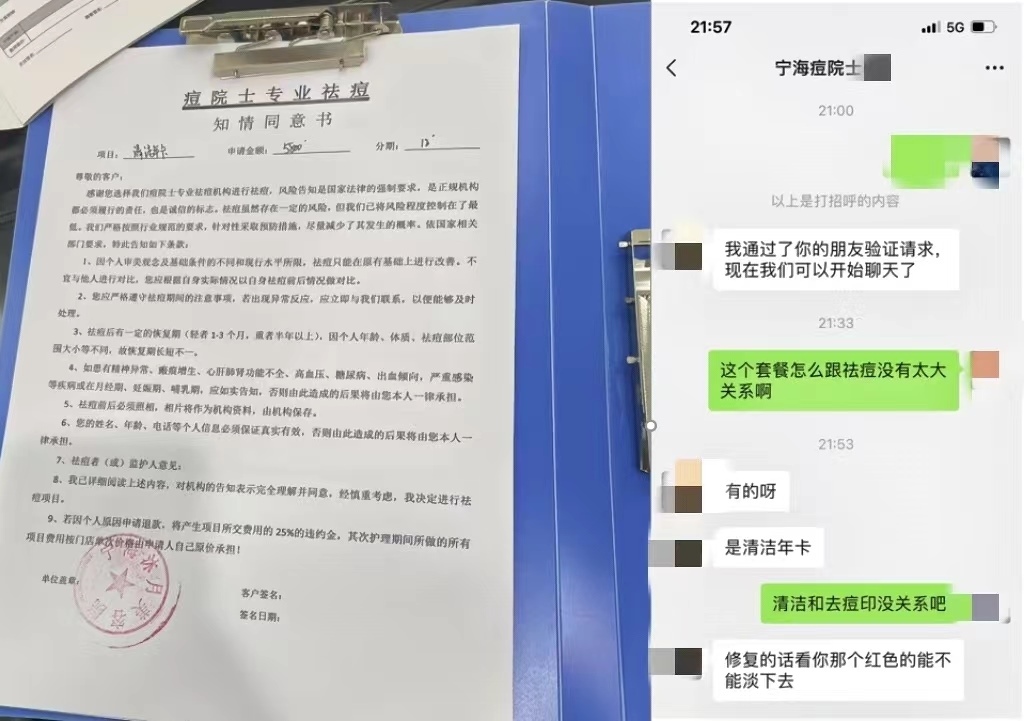 痘院士专业祛痘
知情同意书
项目：清洁卡 申请金额：5800 分期：12
尊敬的客户：
感谢您选择我们痘院士专业祛痘机构进行祛痘，风险告知是国家法律的强制要求，是正规机构
都必须履行的责任，也是诚信的标志。祛痘虽然存在一定的风险，但我们已将风险程度控制在了最
低。我们严格按照行业规范的要求，针对性采取预防措施，尽量减少了其发生的概率。依国家相关
部门要求，特此告知如下条款：
1、因个人审美观念及基础条件的不同和现行水平所限，祛痘只能在原有基础上进行改善。不
宜与他人进行对比，您应根据自身实际情况以自身祛痘前后情况做对比。
2、您应严格遵守祛痘期间的注意事项，若出现异常反应，应立即与我们联系，以便能够及时
处理。
3、祛痘后有一定的恢复期（轻者1-3个月，重者半年以上），因个人年龄、体质、祛痘部位范
围大小等不同，故恢复期长短不一。
4、如患有精神异常、瘢痕增生、心肝肺肾功能不全、高血压、糖尿病、出血倾向，严重感染
等疾病或在月经期、妊娠期、哺乳期，应如实告知，否则由此造成的后果将由您本人一律承担。
5、祛痘前后必须照相，相片将作为机构资料，由机构保存。
6、您的姓名、年龄、电话等个人信息必须保证真实有效，否则由此造成的后果将由您本人一
律承担。
7、祛痘者（或）监护人意见：
8、我已详细阅读上述内容，对机构的告知表示完全理解并同意，经慎重考虑，我决定进行祛
痘项目。
9、若因个人原因申请退款，将产生项目所交费用的25%的违约金，其次护理期间所做的所有
项目费用按门店单次价格由申请人自己原价承担！
单位盖章：
客户签名：
签名日期：
21:57
5G
宁海痘院士
21:00
以上是打招呼的内容
我通过了你的朋友验证请求，
现在我们可以开始聊天了
21:33
这个套餐怎么跟祛痘没有太大
关系啊
21:53
有的呀
是清洁年卡
清洁和去痘印没关系吧
修复的话看你那个红色的能不
能淡下去